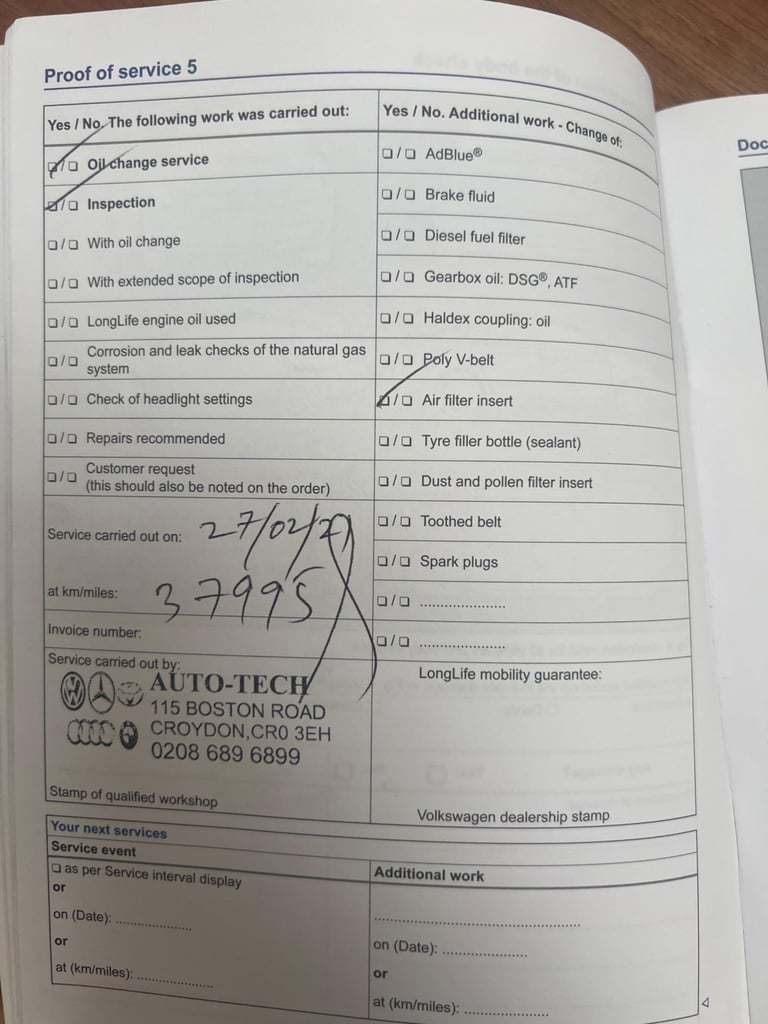 Proof of service 5
Yes / No. The following work was carried out:
❏ / ❏ Oil change service
❏ / ❏ Inspection
❏ / ❏ With oil change
❏ / ❏ With extended scope of inspection
❏ / ❏ LongLife engine oil used
❏ / ❏ Corrosion and leak checks of the natural gas
system
❏ / ❏ Check of headlight settings
❏ / ❏ Repairs recommended
❏ / ❏ Customer request
(this should also be noted on the order)
Service carried out on: 27/02/21
at km/miles: 37995
Invoice number:
Service carried out by:
AUTO-TECH
115 BOSTON ROAD
CROYDON,CR0 3EH
0208 689 6899
Stamp of qualified workshop
Yes / No. Additional work - Change of:
❏ / ❏ AdBlue®
❏ / ❏ Brake fluid
❏ / ❏ Diesel fuel filter
❏ / ❏ Gearbox oil: DSG®, ATF
❏ / ❏ Haldex coupling: oil
❏ / ❏ Poly V-belt
❏ / ❏ Air filter insert
❏ / ❏ Tyre filler bottle (sealant)
❏ / ❏ Dust and pollen filter insert
❏ / ❏ Toothed belt
❏ / ❏ Spark plugs
❏ / ❏ ......................
❏ / ❏ ......................
LongLife mobility guarantee:
Volkswagen dealership stamp
Your next services
Service event
❏ as per Service interval display
or
on (Date): ....................
or
at (km/miles): ....................
Additional work
......................................................
on (Date): ......................
or
at (km/miles): ......................
Doc